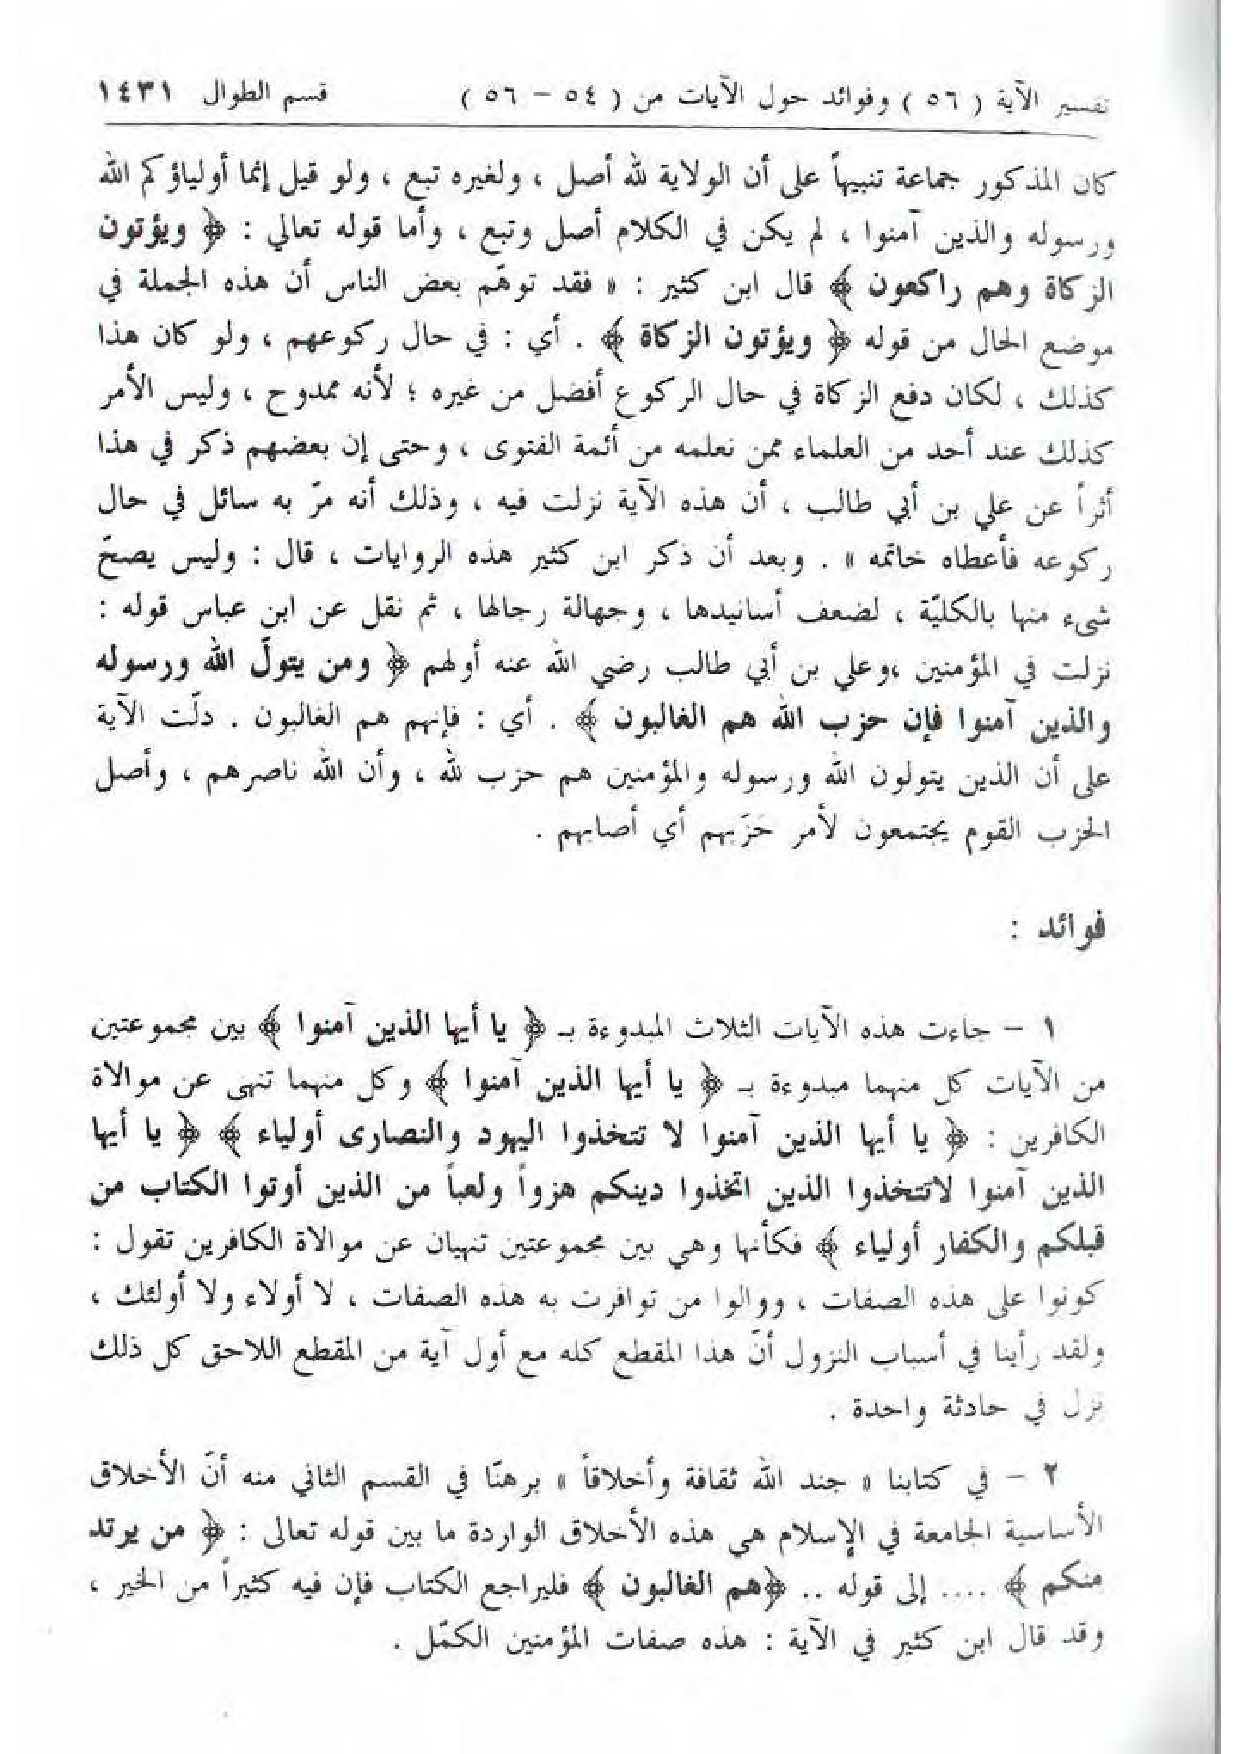 تفسير الآية ( ٥٦ ) وفوائد حول الآيات من ( ٥٤ – ٥٦ ) قسم الطوال ١٤٣١
كان المذكور جماعة تنبيهاً على أن الولاية لله أصل ، ولغيره تبع ، ولو قيل إنما أولياؤكم الله
ورسوله والذين آمنوا ، لم يكن في الكلام أصل وتبع ، وأما قوله تعالى : ﴿ ويؤتون
الزكاة وهم راكعون ﴾ قال ابن كثير : « فقد توهّم بعض الناس أن هذه الجملة في
موضع الحال من قوله ﴿ ويؤتون الزكاة ﴾ . أي : في حال ركوعهم ، ولو كان هذا
كذلك ، لكان دفع الزكاة في حال الركوع أفضل من غيره ؛ لأنه ممدوح ، وليس الأمر
كذلك عند أحد من العلماء ممن نعلمه من أئمة الفتوى ، وحتى إن بعضهم ذكر في هذا
أثراً عن علي بن أبي طالب ، أن هذه الآية نزلت فيه ، وذلك أنه مرّ به سائل في حال
ركوعه فأعطاه خاتمه » . وبعد أن ذكر ابن كثير هذه الروايات ، قال : وليس يصحّ
شيء منها بالكليّة ، لضعف أسانيدها ، وجهالة رجالها ، ثم نقل عن ابن عباس قوله :
نزلت في المؤمنين ،وعلي بن أبي طالب رضي الله عنه أولهم ﴿ ومن يتولّ الله ورسوله
والذين آمنوا فإن حزب الله هم الغالبون ﴾ . أي : فإنهم هم الغالبون . دلّت الآية
على أن الذين يتولون الله ورسوله والمؤمنين هم حزب لله ، وأن الله ناصرهم ، وأصل
الحزب القوم يجتمعون لأمر حَزَبهم أي أصابهم .
فوائد :
١ – جاءت هذه الآيات الثلاث المبدوءة بـ ﴿ يا أيها الذين آمنوا ﴾ بين مجموعتين
من الآيات كل منهما مبدوءة بـ ﴿ يا أيها الذين آمنوا ﴾ وكل منهما تنهى عن موالاة
الكافرين : ﴿ يا أيها الذين آمنوا لا تتخذوا اليهود والنصارى أولياء ﴾ ﴿ يا أيها
الذين آمنوا لاتتخذوا الذين اتخذوا دينكم هزواً ولعباً من الذين أوتوا الكتاب من
قبلكم والكفار أولياء ﴾ فكأنها وهي بين مجموعتين تنهيان عن موالاة الكافرين تقول :
كونوا على هذه الصفات ، ووالوا من توافرت به هذه الصفات ، لا أولاء ولا أولئك ،
ولقد رأينا في أسباب النزول أنّ هذا المقطع كله مع أول آية من المقطع اللاحق كل ذلك
نزل في حادثة واحدة .
٢ – في كتابنا « جند الله ثقافة وأخلاقاً » برهنّا في القسم الثاني منه أنّ الأخلاق
الأساسية الجامعة في الإسلام هي هذه الأخلاق الواردة ما بين قوله تعالى : ﴿ من يرتد
منكم ﴾ .... إلى قوله .. ﴿هم الغالبون ﴾ فليراجع الكتاب فإن فيه كثيراً من الخير ،
وقد قال ابن كثير في الآية : هذه صفات المؤمنين الكمّل .